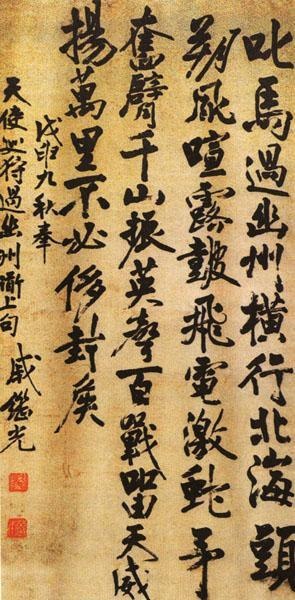 叱馬過幽州橫行北海頭
朔風喧露鼓飛電激蛇矛
奮臂千山振英聲百戰留天威
揚萬里不必侈封侯
戊申九秋奉
天使出狩過幽州衝上句
戚繼光